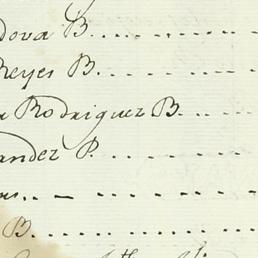 dova B.
Reyes B.
a Rodriguez B.
andez P.
B.